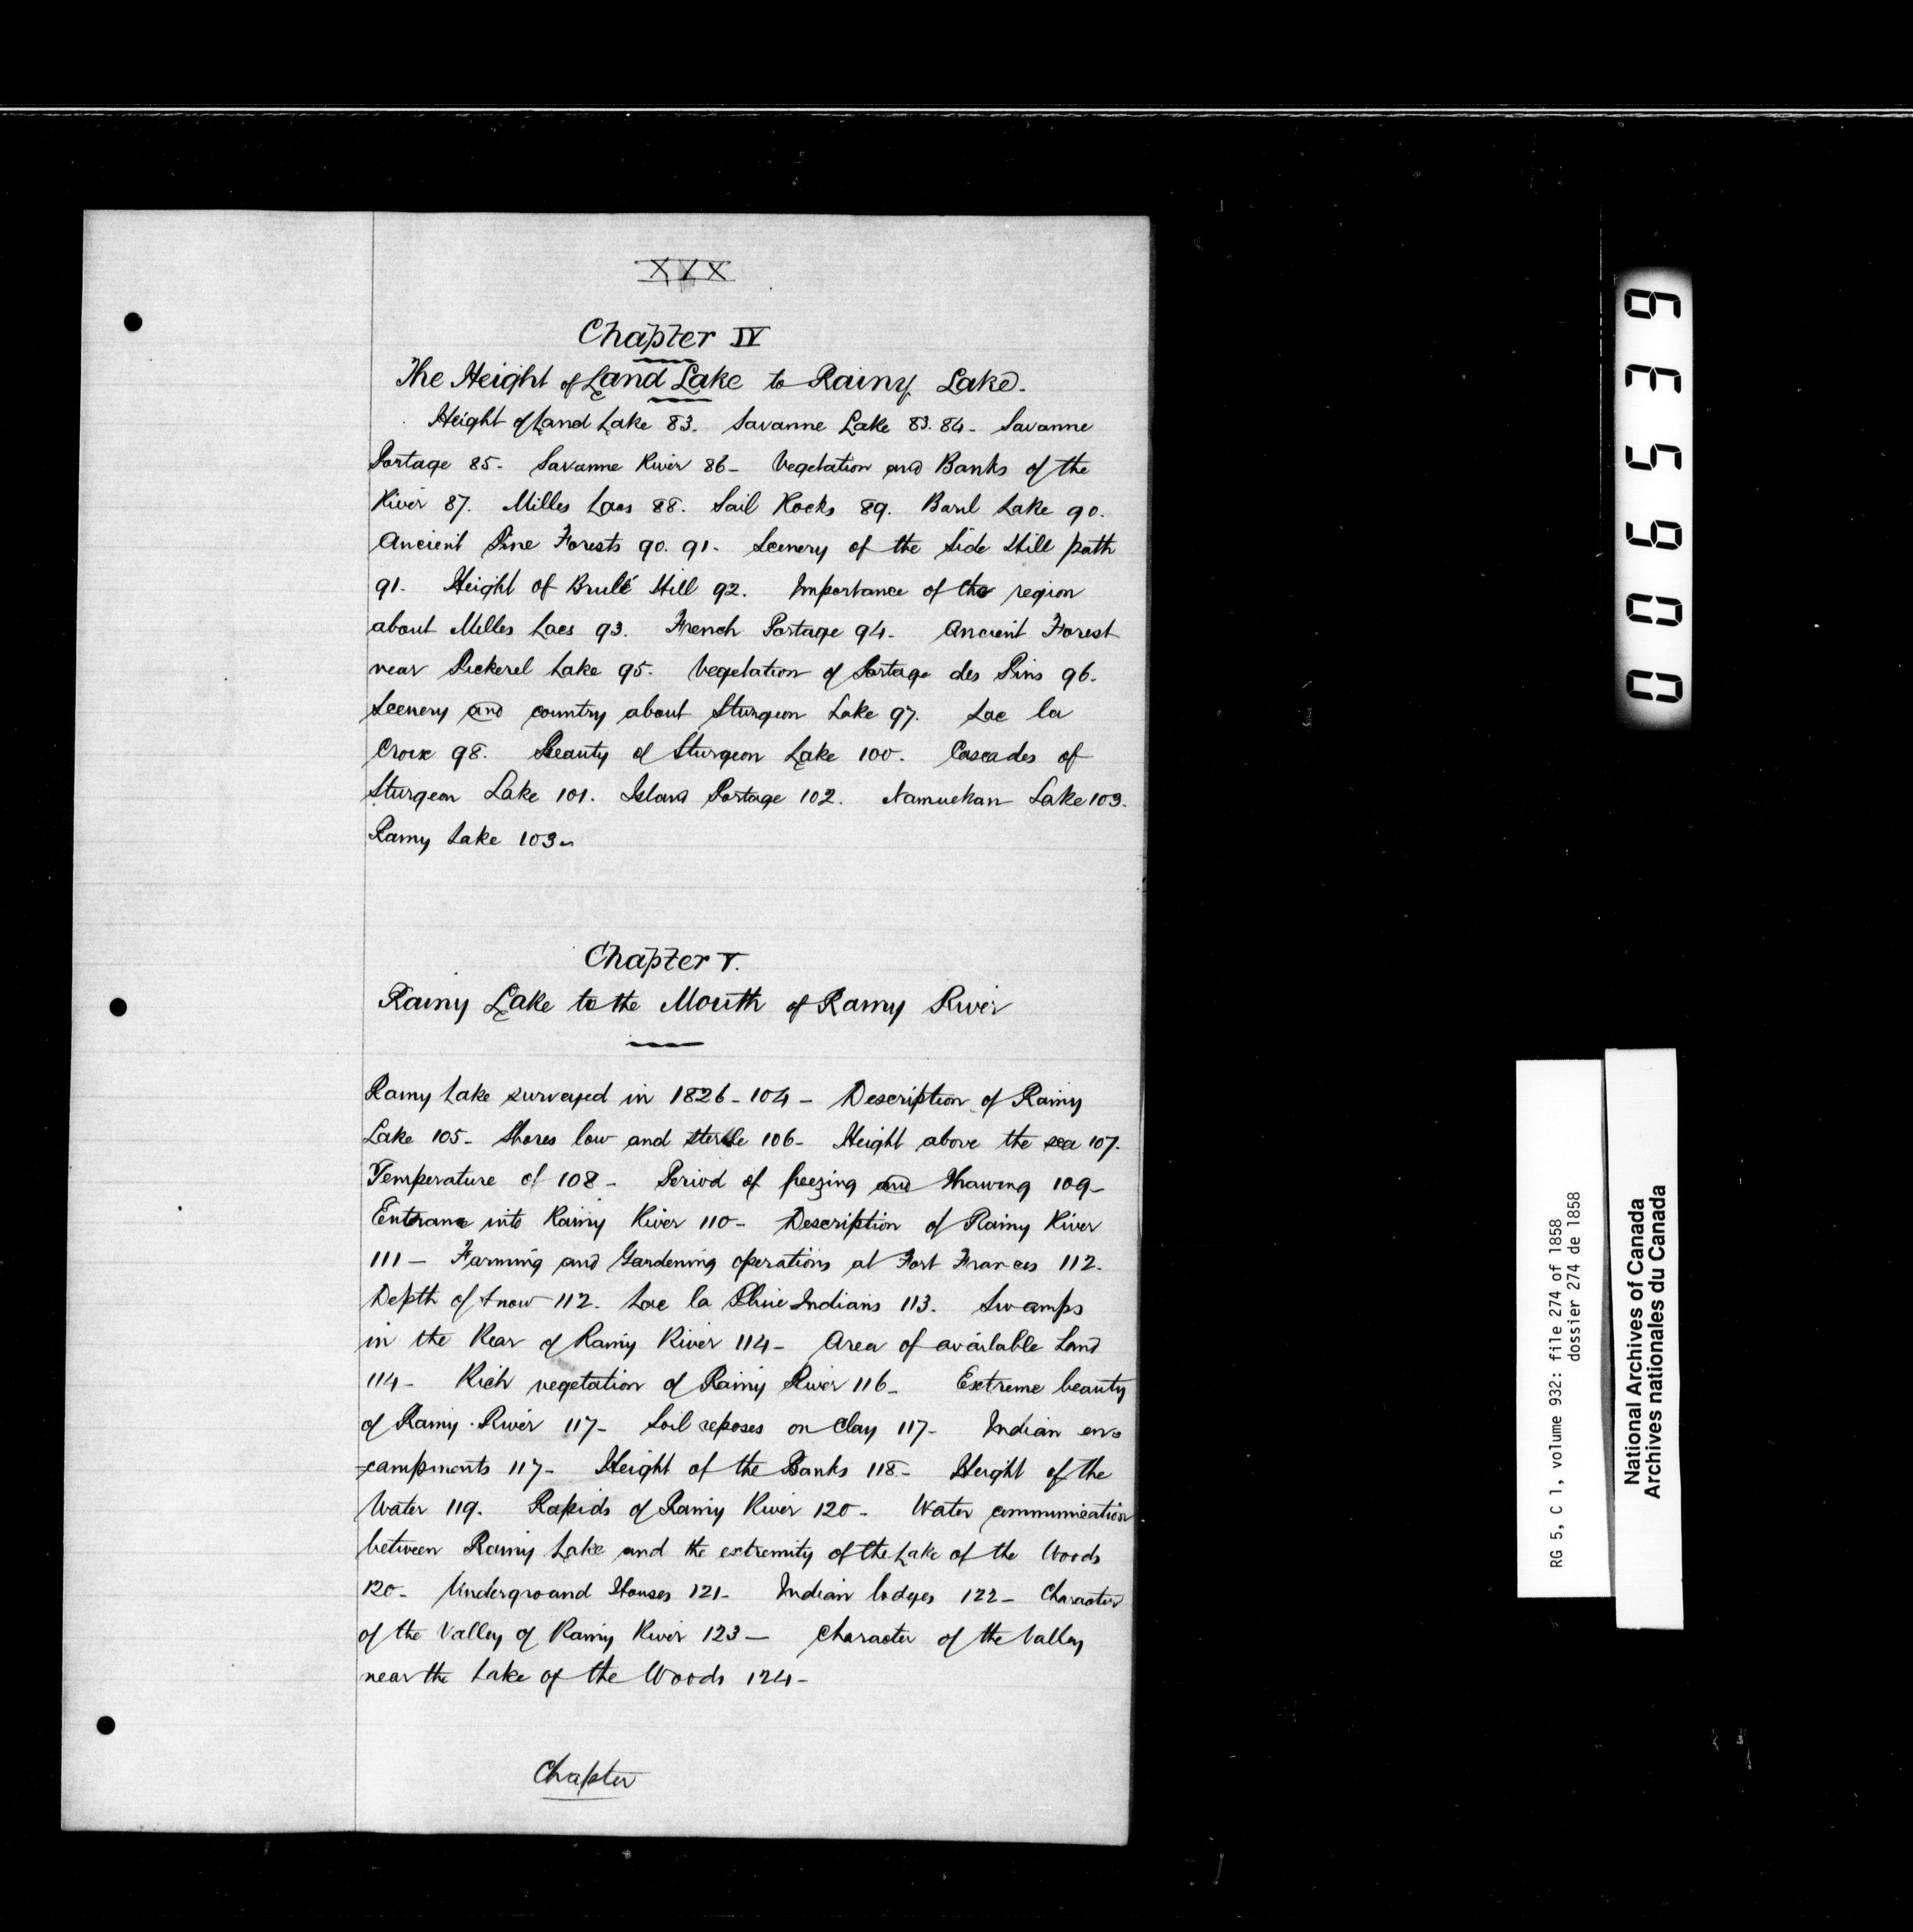 XIX
Chapter IV
The Height of Land Lake to Rainy Lake.
Height of Land Lake 83. Savanne Lake 83. 84 - Savanne
Portage 85 - Savanne River 86 - Vegetation and Banks of the
River 87. Milles Lacs 88. Sail Rocks 89. Baril Lake 90.
Ancient Pine Forests 90. 91 - Scenery of the Side Hill path
91 - Height of Brulé Hill 92. Importance of the region
about Milles Lacs 93. French Portage 94 - Ancient Forest
near Pickerel Lake 95. Vegetation of Portage des Pins 96.
Scenery and country about Sturgeon Lake 97. Lac la
Croix 98. Beauty of Sturgeon Lake 100. Cascades of
Sturgeon Lake 101. Island Portage 102. Namuekan Lake 103.
Rainy Lake 103 -
Chapter V.
Rainy Lake to the Mouth of Rainy River
Rainy Lake surveyed in 1826 - 104 - Description of Rainy
Lake 105 - Shores low and sterile 106 - Height above the sea 107.
Temperature of 108 - Period of freezing and thawing 109 -
Entrance into Rainy River 110 - Description of Rainy River
111 - Farming and Gardening operations at Fort Frances 112.
Depth of Snow 112. Lac la Pluie Indians 113. Swamps
in the Rear of Rainy River 114 - Area of available Land
114 - Rich vegetation of Rainy River 116 - Extreme beauty
of Rainy River 117 - Soil reposes on Clay 117 - Indian en=
=campments 117 - Height of the Banks 118 - Height of the
Water 119. Rapids of Rainy River 120 - Water communication
between Rainy Lake and the extremity of the Lake of the Woods
120 - Underground Houses 121 - Indian lodges 122 - Character
of the Valley of Rainy River 123 - Character of the Valley
near the Lake of the Woods 124 -
Chapter
006539
RG 5, C 1, volume 932: file 274 of 1858
dossier 274 de 1858
National Archives of Canada
Archives nationales du Canada